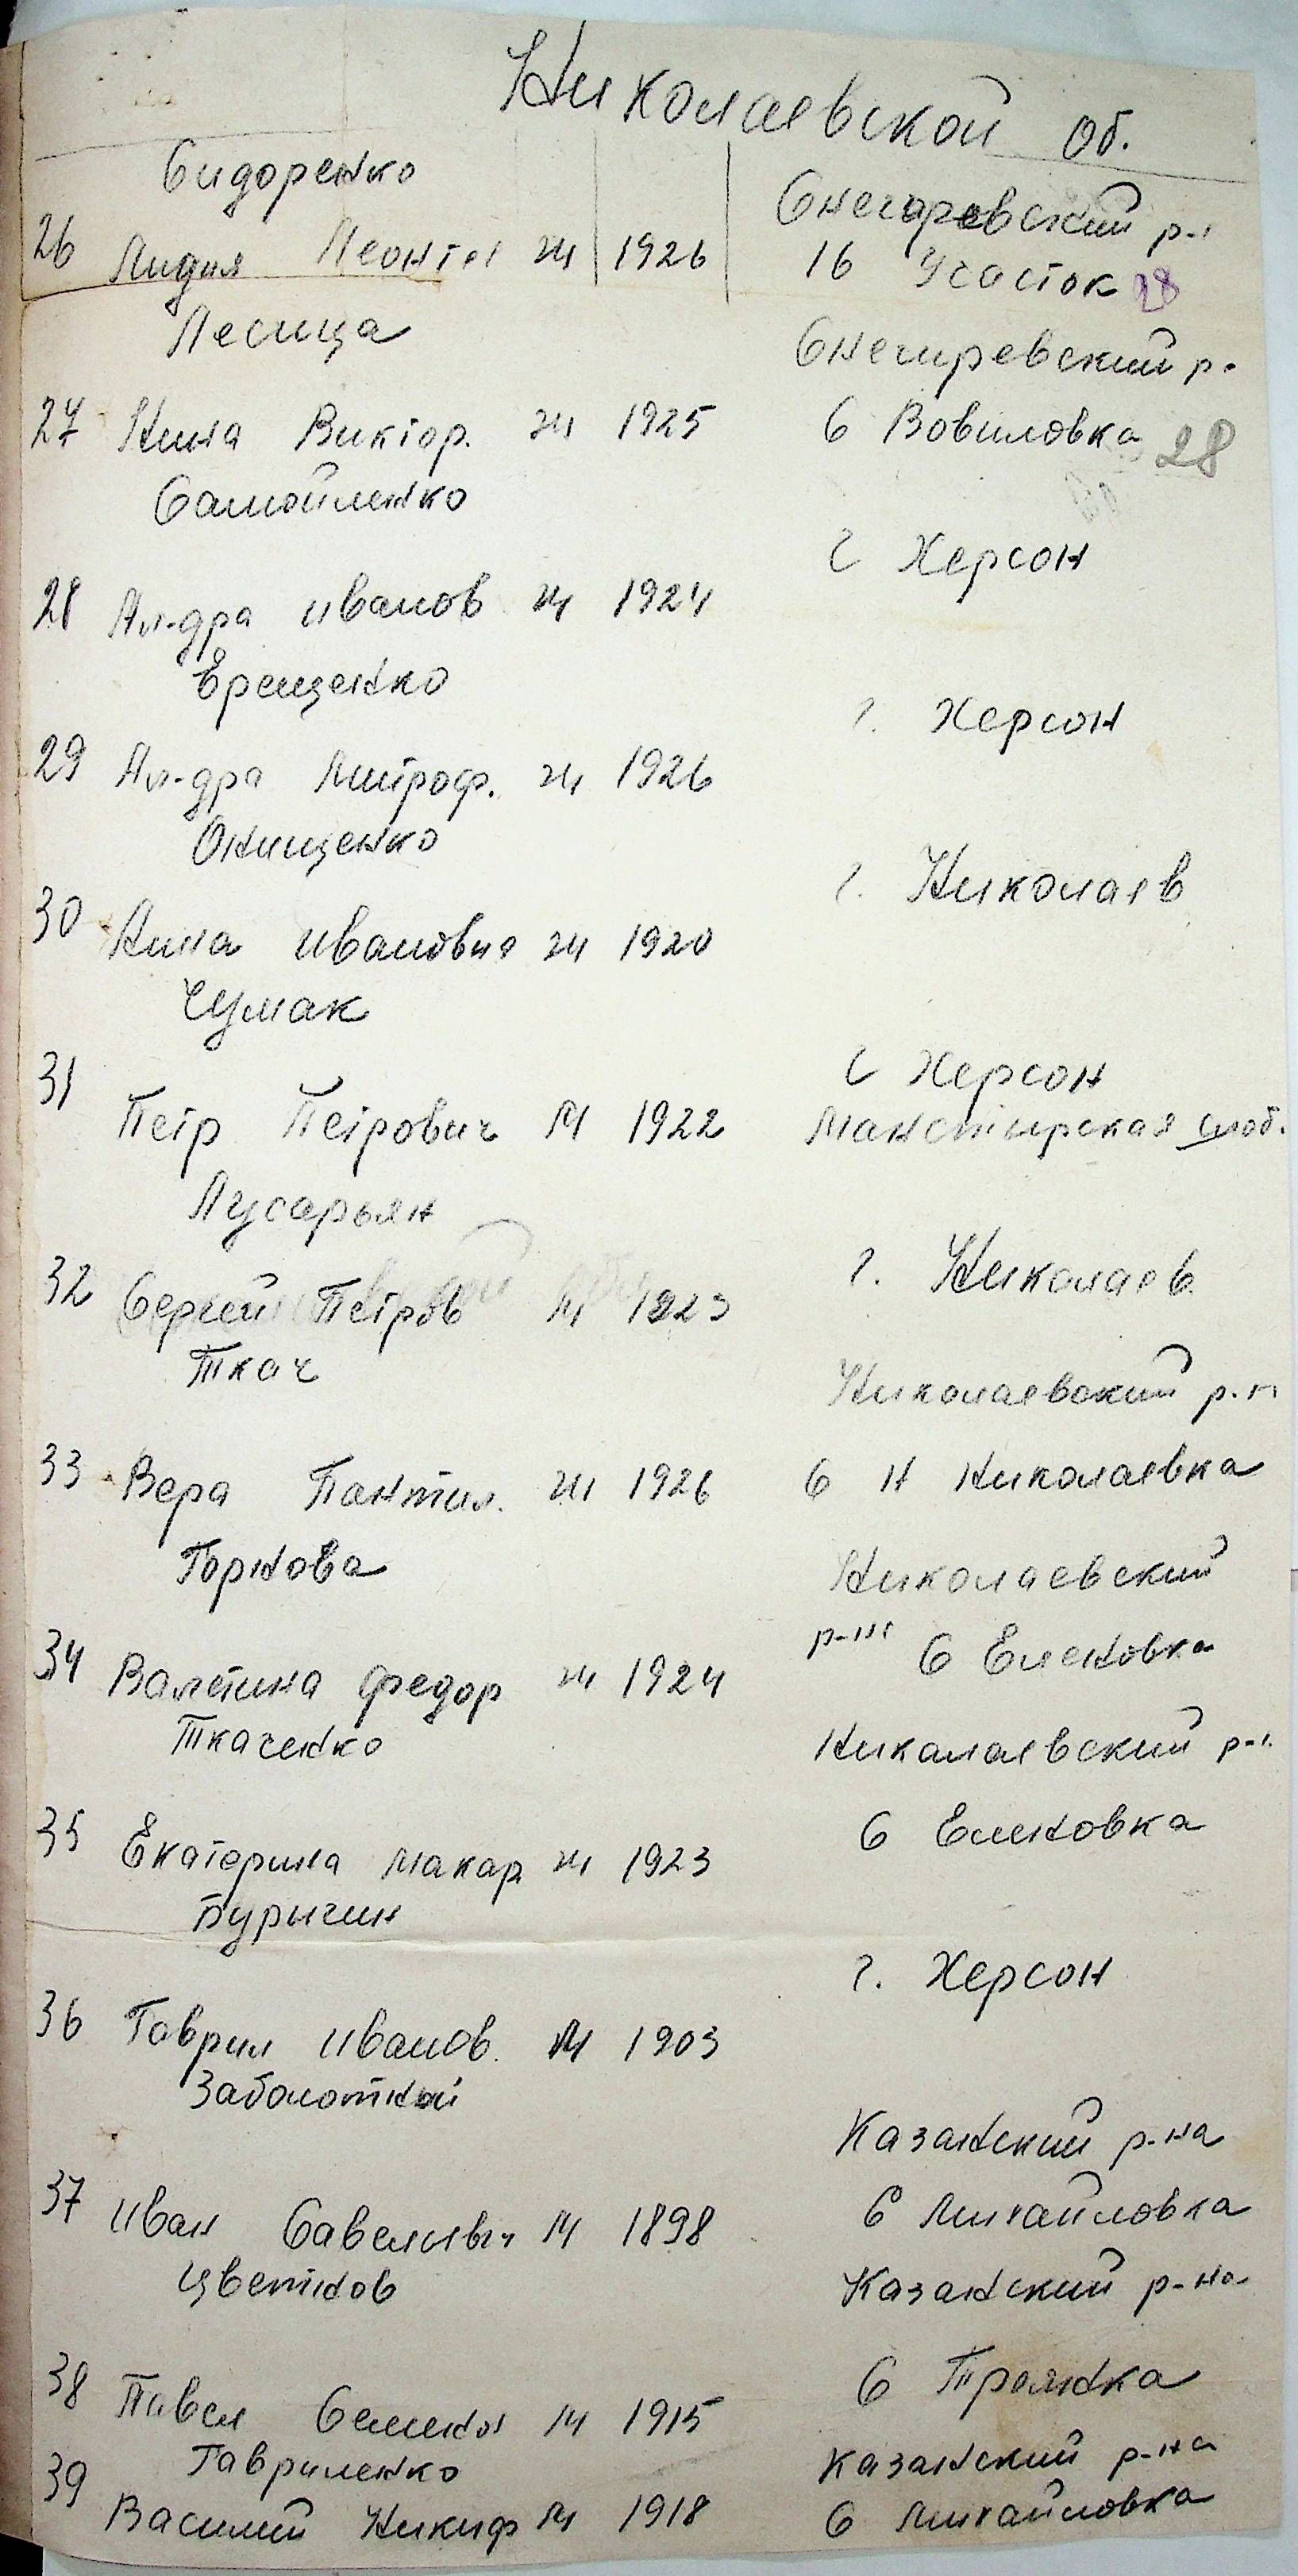 Николаевской об.
Сидоренко
Снегаревский р.
26 Лидия Леонтеi ж 1926 16 Участок 28
Лесица
Снегиревский р.
27 Нина Виктор. ж 1925 С Вовиловка 28
Самойленко
г Херсон
28 Ал-дра Иванов ж 1924
Ерещенко
г. Херсон
29 Ал-дра Митроф. ж 1926
Онищенко
г. Николаев
30 Нина Ивановна ж 1920
Чумак
31 г Херсон
Петр Петрович М 1922 Манстырская слоб.
Лусарьян
32 Сергей Петров М 1923 г. Николаев
Ткач
Николаевский р.н
33 Вера Пантил. ж 1926 С Н Николаевка
Горнова
Николаевский
р-н С Еленовка
34 Валетина Федор ж 1924
Ткаченко
Николаевский р-н
35 Екатерина Макар ж 1923 С Еленовка
Бурыгин
г. Херсон
36 Гаврил Иванов. М 1903
Заболотной
Казанский р-на
37 Иван Савельевич М 1898 С Михайловка
Цветков
Казанский р-на
38 Павел Семенов М 1915 С Троянка
Гавриленко
Казанский р-на
39 Василий Никиф М 1918 С Михайловка